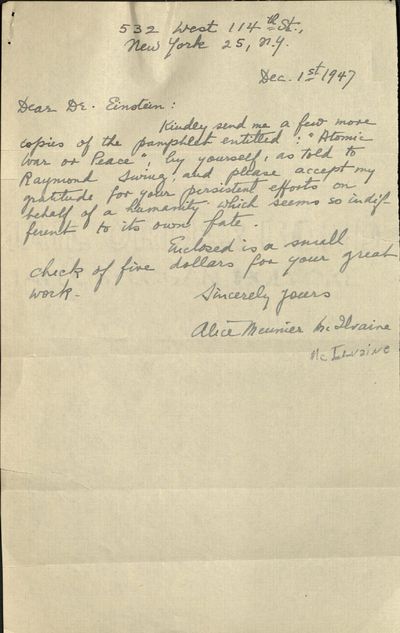 532 West 114th St.,
New York 25, N.Y.
Dec. 1st 1947
Dear Dr. Einstein:
Kindly send me a few more
copies of the pamphlet entitled: "Atomic
War or Peace", by yourself, as told to
Raymond Swing, and please accept my
gratitude for your persistent efforts on
behalf of a humanity which seems so indif
ferent to its own fate.
Enclosed is a small
check of five dollars for your great
work.
Sincerely yours
Alice Meunier McIlvaine
McIlvaine